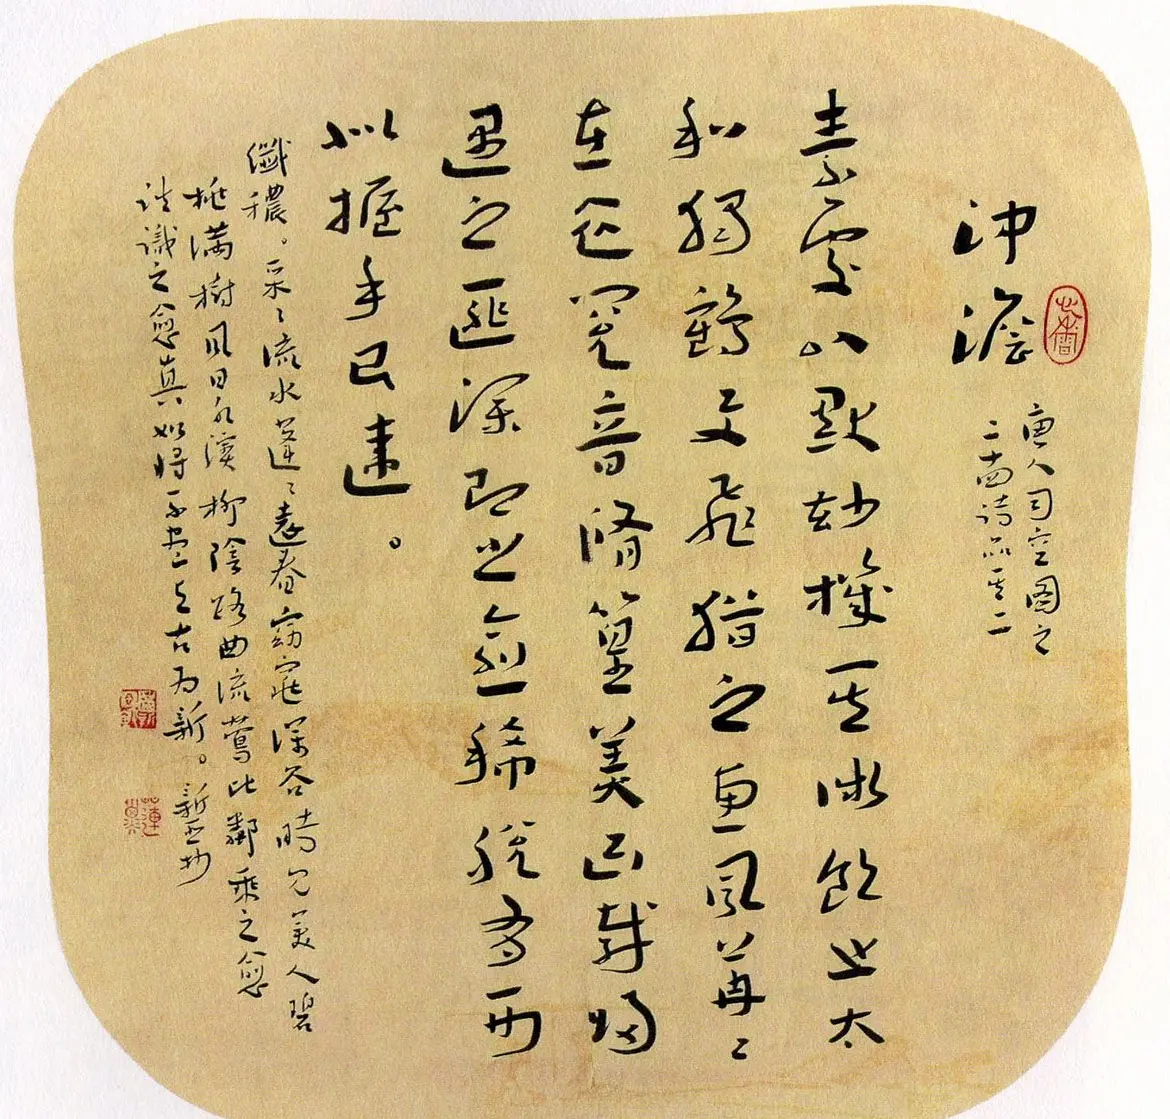 沖澹
唐人司空图之
二十四詩品其二
素處以默妙機其微飲之太
和獨鶴与飛猶之惠風苒〻
在衣閱音脩篁美曰載歸
遇之匪深即之愈稀脱有形
似握手已違。
纖穠。采〻流水蓬〻遠春窈窕深谷時見美人碧
桃滿樹風日水濱柳陰路曲流鶯比鄰乘之愈
往識之愈真如將不盡与古为新。新亚抄